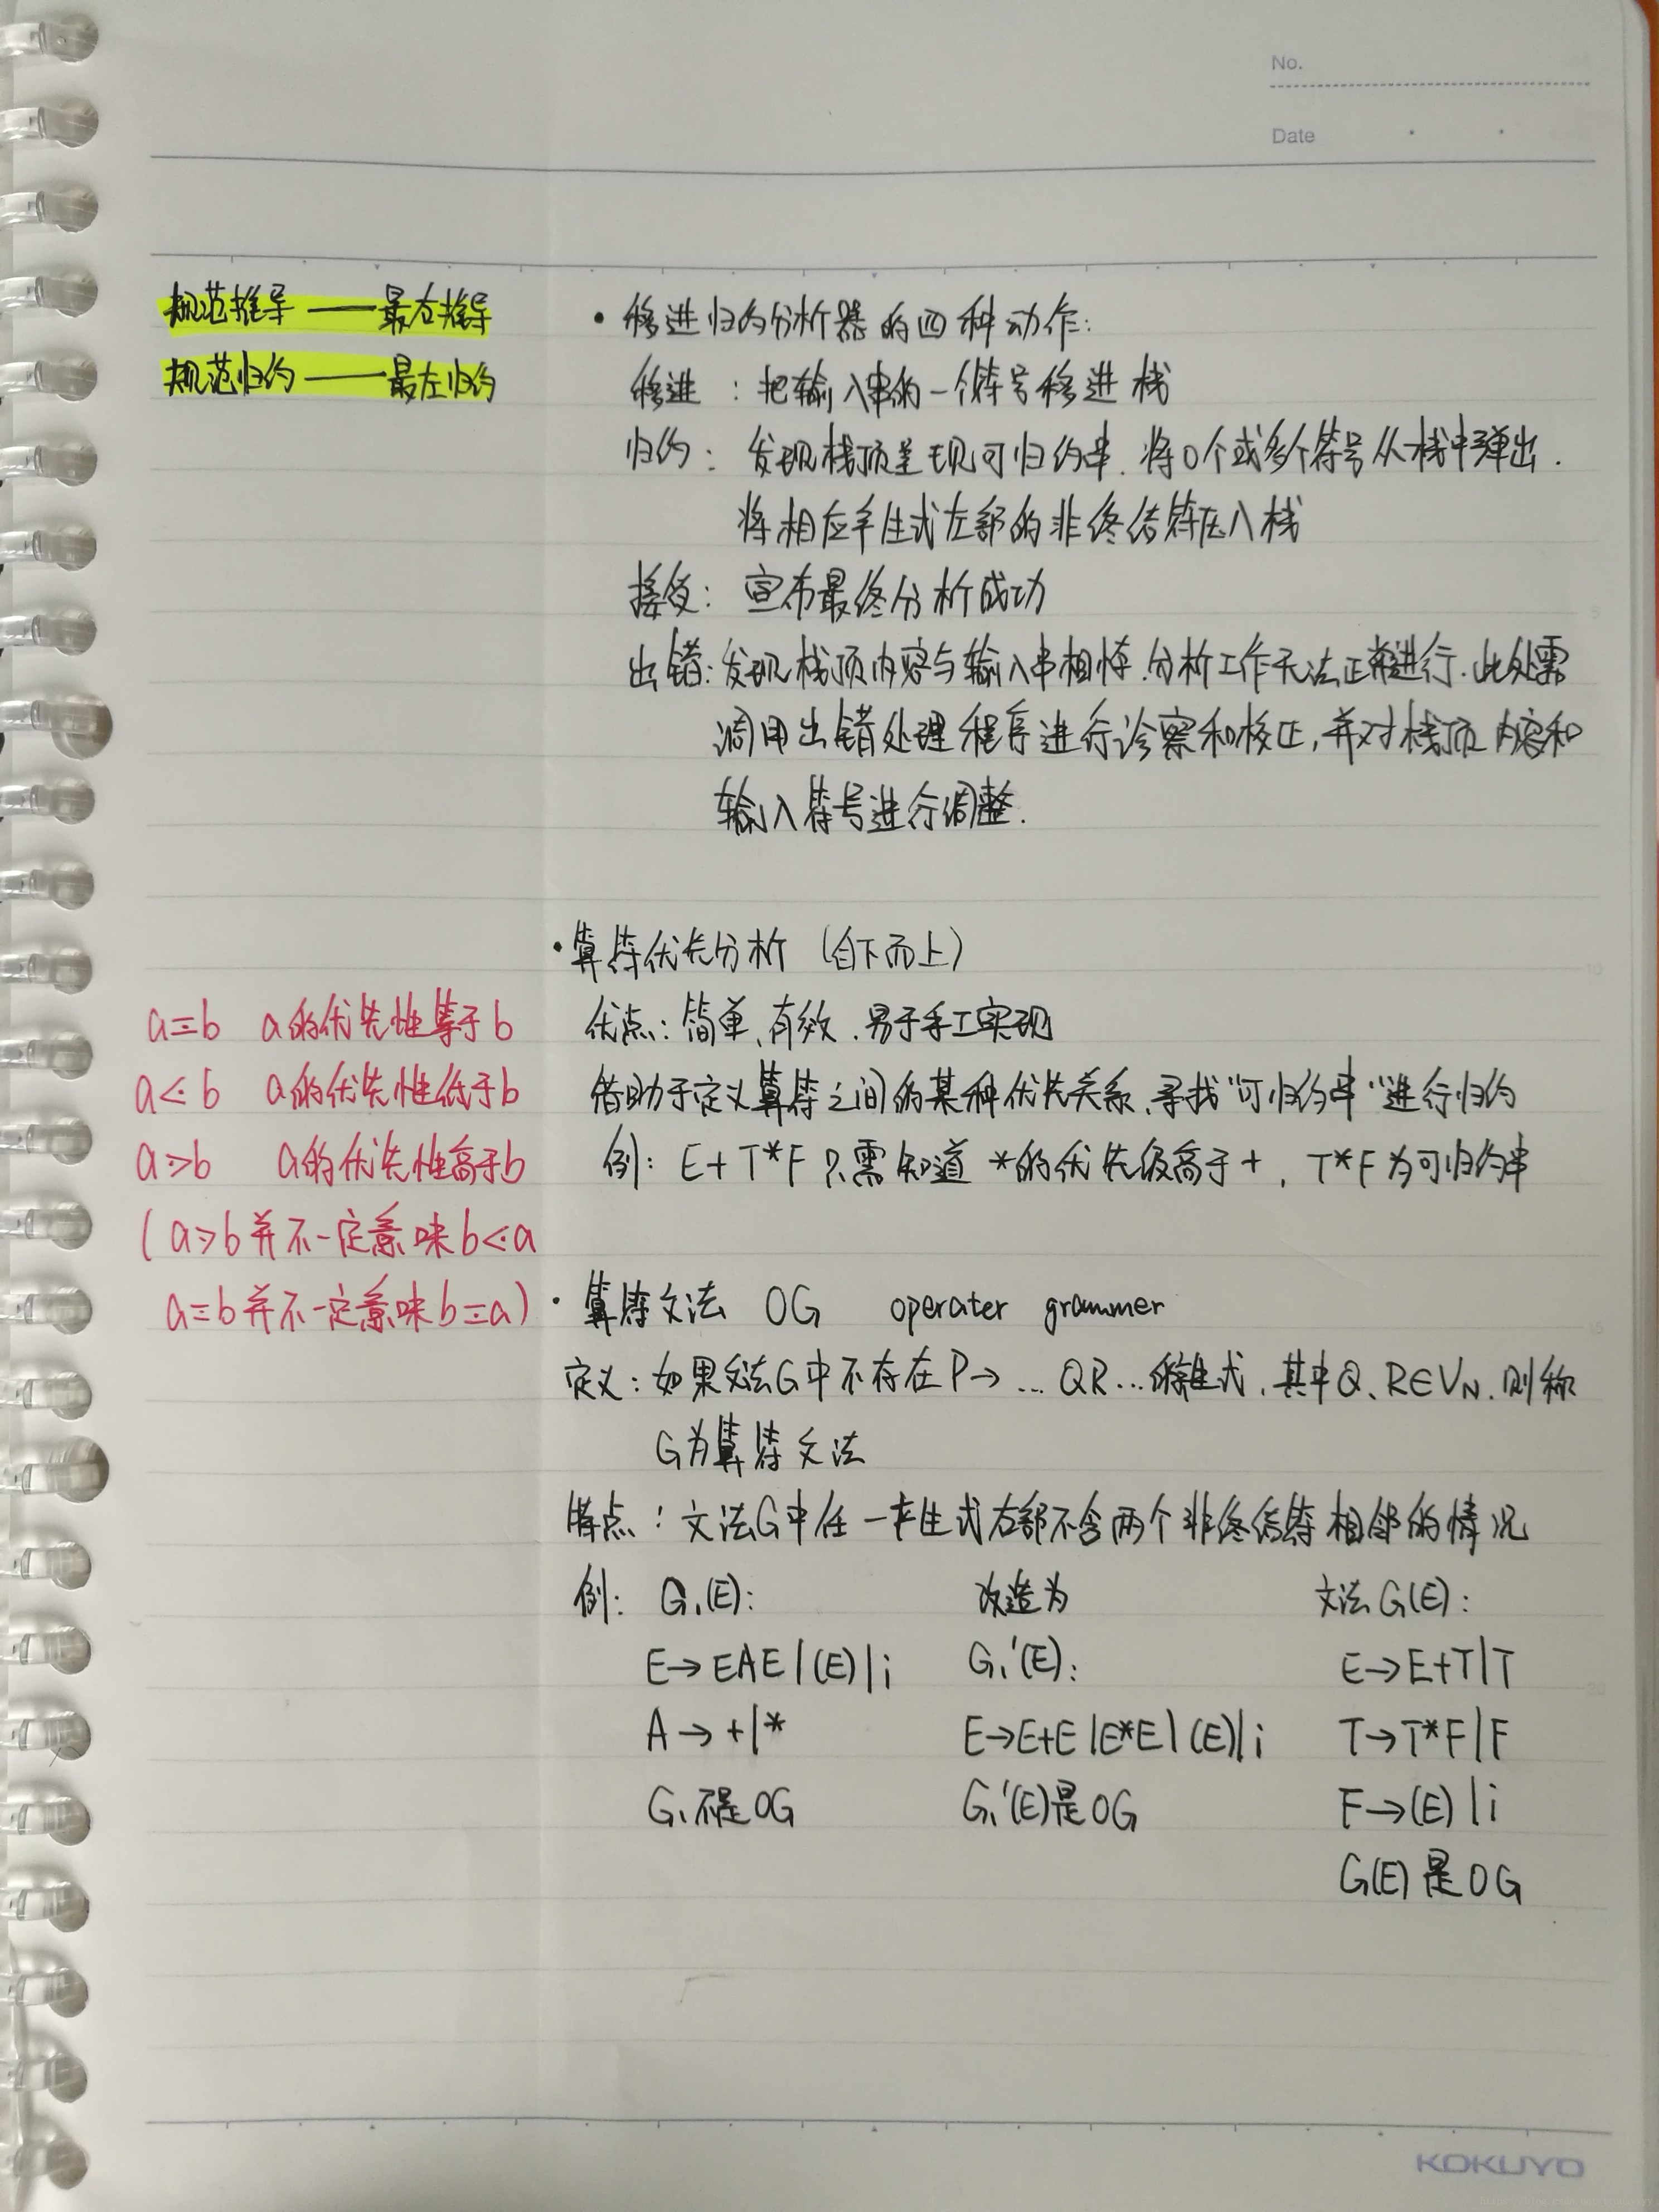 No.
Date
规范推导——最右推导
规范归约——最左归约
· 移进归约分析器的四种动作:
移进:把输入串的一个符号移进栈
归约:发现栈顶呈现可归约串,将0个或多个符号从栈中弹出.
将相应产生式左部的非终结符压入栈
接受:宣布最终分析成功
出错:发现栈顶内容与输入串相悖,分析工作无法正常进行.此处需
调用出错处理程序进行诊察和校正,并对栈顶内容和
输入符号进行调整.
· 算符优先分析(自下而上)
优点:简单、有效.易于手工实现
借助于定义算符之间的某种优先关系,寻找“可归约串”进行归约
例:E+T*F 只需知道 *的优先级高于+, T*F为可归约串
a≖b a的优先性等于b
a⋖b a的优先性低于b
a⋗b a的优先性高于b
(a⋗b并不一定意味b⋖a
a≖b并不一定意味b≖a)
· 算符文法 OG operater grammer
定义:如果文法G中不存在P→...QR...的产生式,其中Q、R∈VN,则称
G为算符文法
特点:文法G中任一产生式右部不含两个非终结符相邻的情况
例: G₁(E): 改造为 文法G(E):
E→EAE|(E)|i G₁'(E): E→E+T|T
A→+|* E→E+E|E*E|(E)|i T→T*F|F
G₁不是OG G₁'(E)是OG F→(E)|i
G(E)是OG
KOKUYO